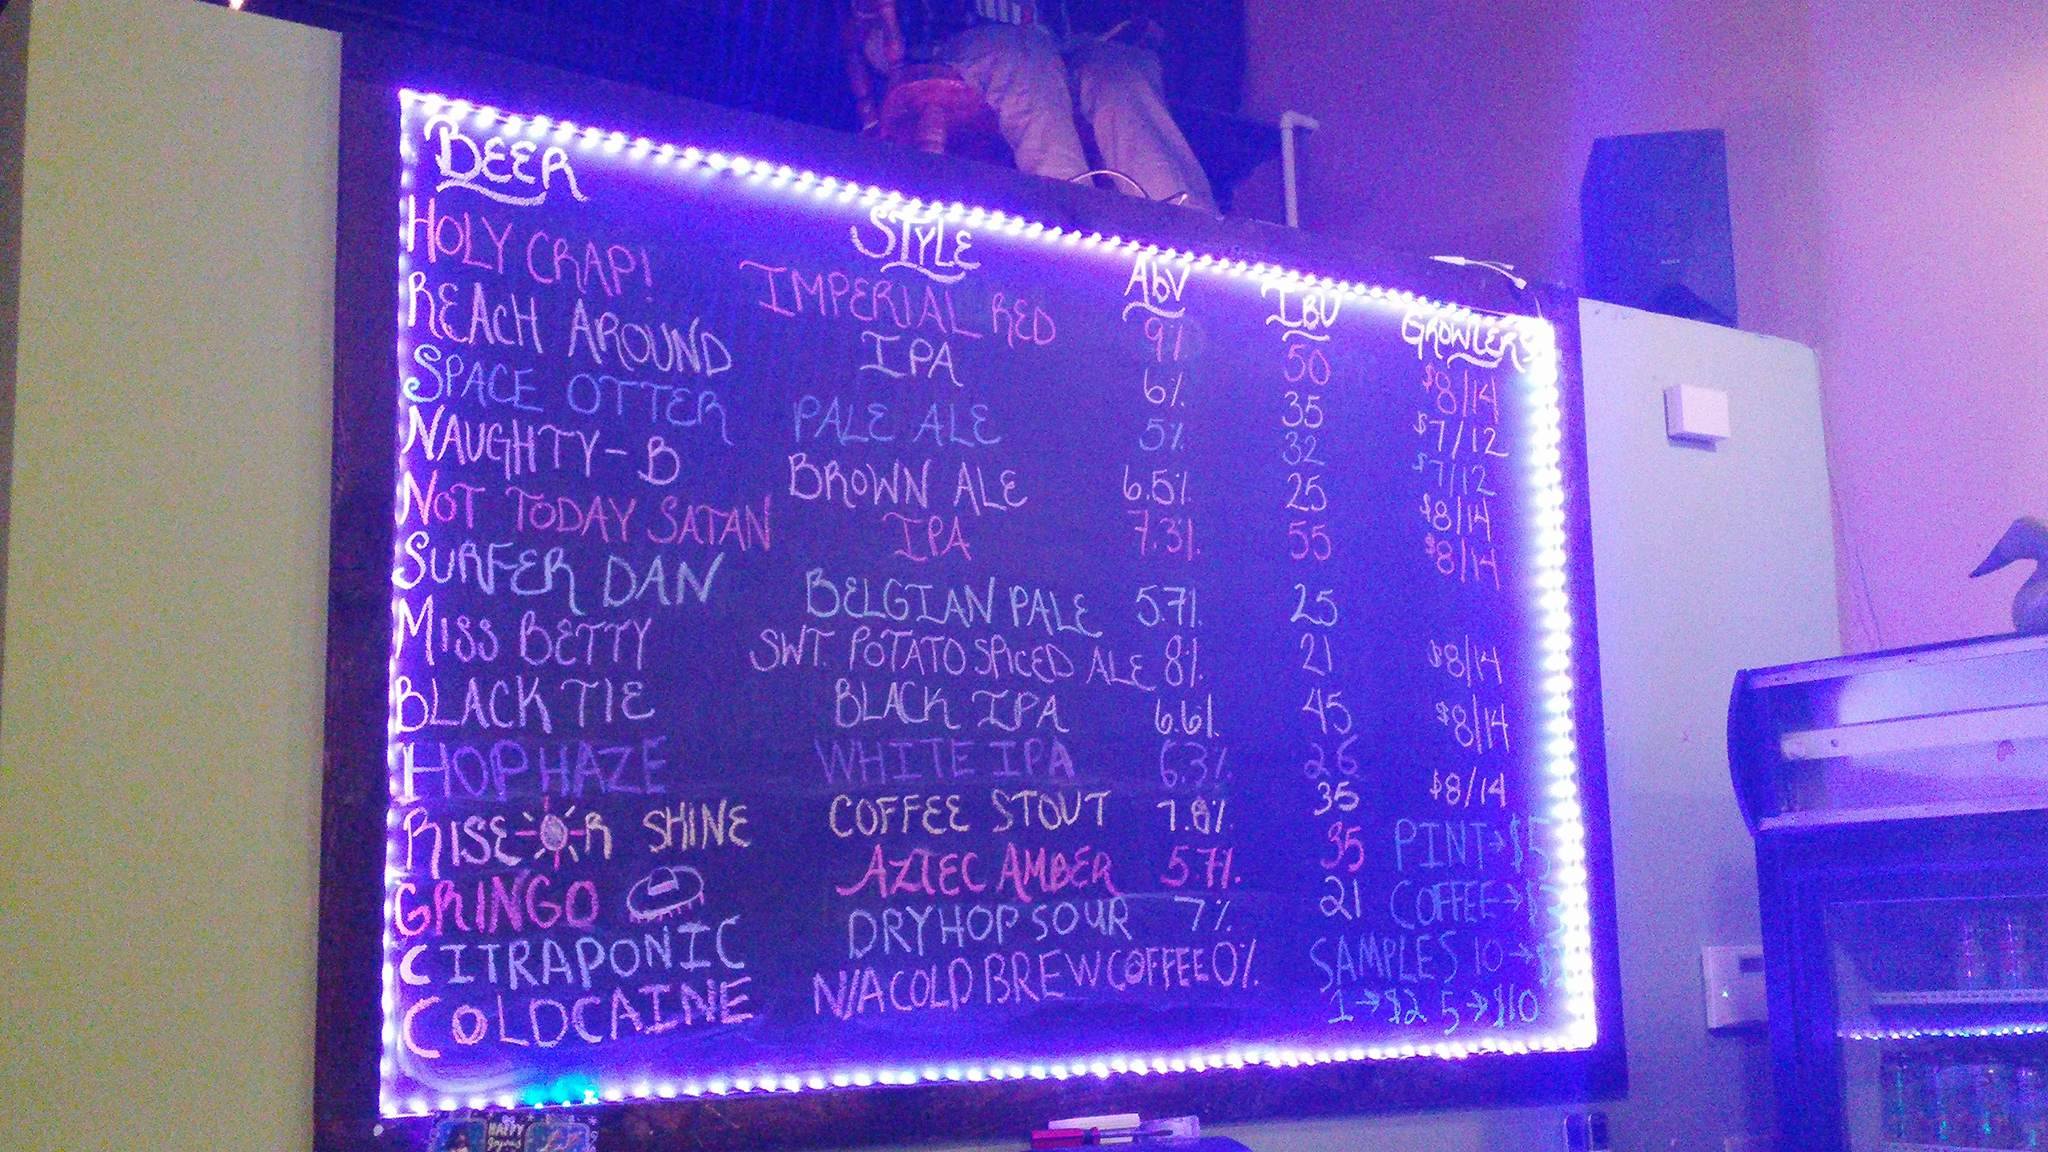 BEER STYLE ABV IBU GROWLERS
HOLY CRAP! IMPERIAL RED 9% 50 $8/14
REACH AROUND IPA 6% 35 $7/12
SPACE OTTER PALE ALE 5% 32 $7/12
NAUGHTY-B BROWN ALE 6.5% 25 $8/14
NOT TODAY SATAN IPA 7.3% 55 $8/14
SURFER DAN BELGIAN PALE 5.7% 25
MISS BETTY SWT. POTATO SPICED ALE 8% 21 $8/14
BLACK TIE BLACK IPA 6.6% 45 $8/14
HOP HAZE WHITE IPA 6.3% 26 $8/14
RISE R SHINE COFFEE STOUT 7.8% 35
GRINGO AZTEC AMBER 5.7% 35
CITRAPONIC DRY HOP SOUR 7% 21
COLDCAINE N/A COLD BREW COFFEE 0%
PINT→$5
COFFEE→
SAMPLES 10→
1→$2 5→$10
HAPPY